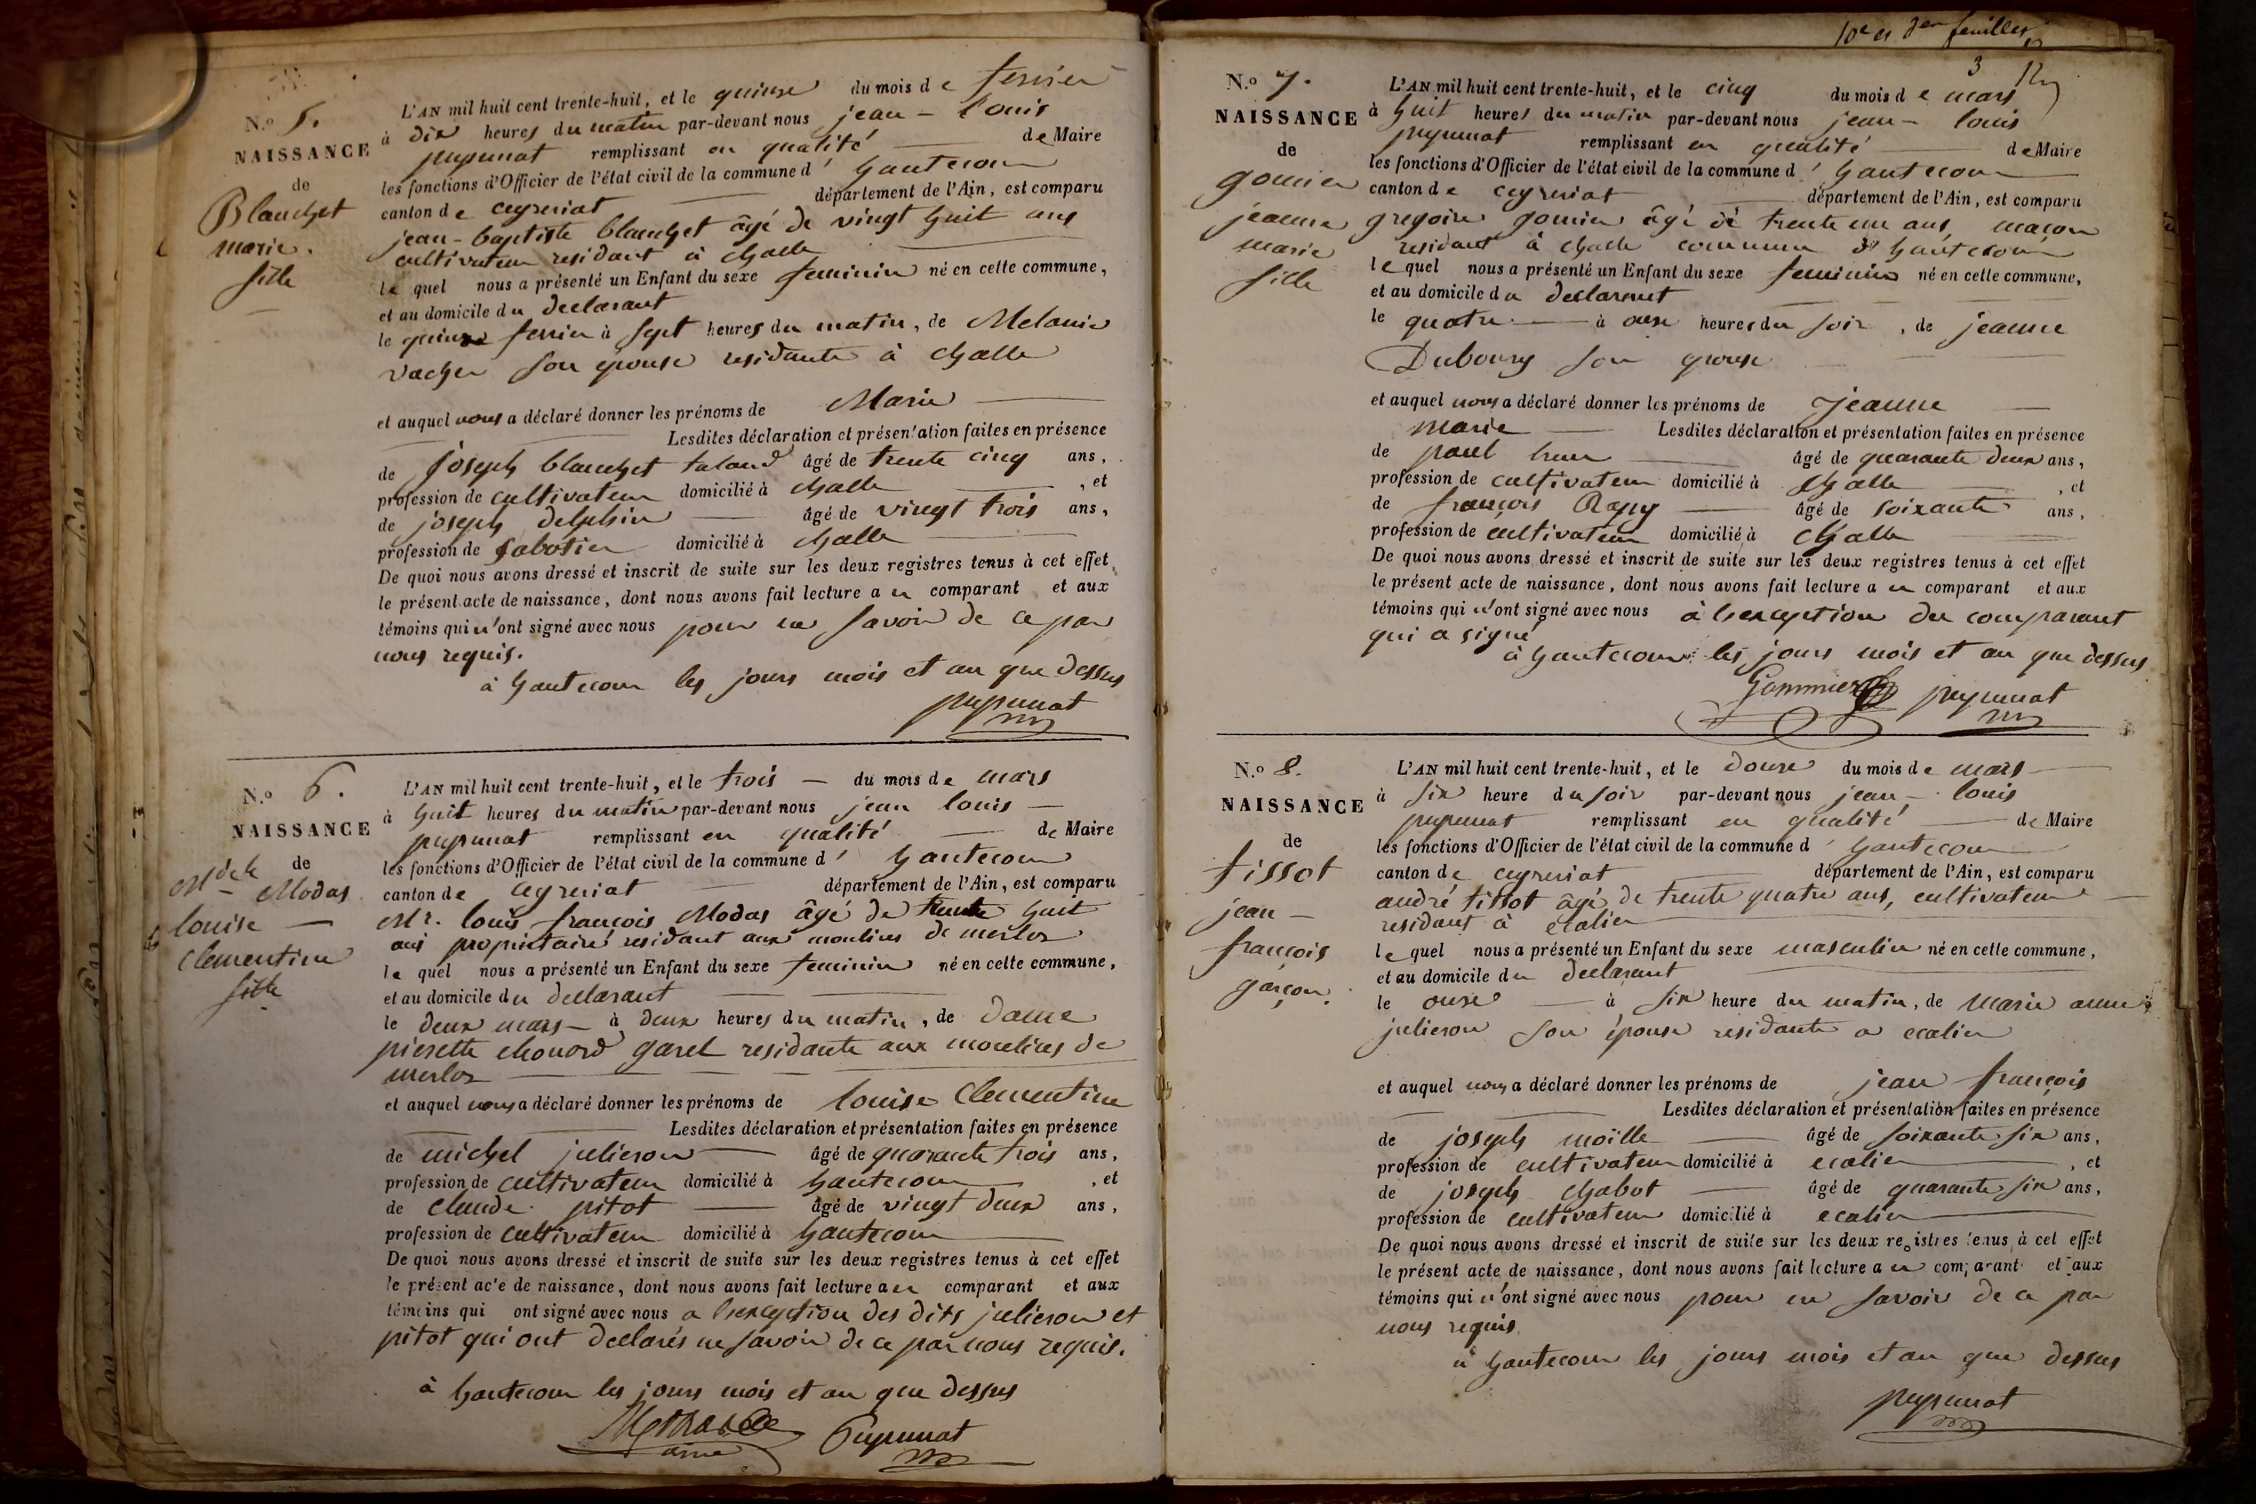 N.o 5.
NAISSANCE
de
Blanchet
marie.
fille
L'AN mil huit cent trente-huit, et le quinze du mois de fevrier
à dix heures du matin par-devant nous jean - louis
puyunat remplissant en qualité de Maire
les fonctions d'Officier de l'état civil de la commune d' hautecour
canton de ceyzeriat département de l'Ain, est comparu
jean-baptiste blanchet âgé de vingt huit ans
cultivateur residant à challe
le quel nous a présenté un Enfant du sexe feminin né en cette commune,
et au domicile du declarant
le quinze fevrier à sept heures du matin, de Melanie
vacher son épouse residante à challe
et auquel nous a déclaré donner les prénoms de Marie
Lesdites déclaration et présentation faites en présence
de joseph blanchet taland âgé de trente cinq ans,
profession de cultivateur domicilié à challe , et
de joseph delphin âgé de vingt trois ans,
profession de sabotier domicilié à challe
De quoi nous avons dressé et inscrit de suite sur les deux registres tenus à cet effet,
le présent acte de naissance, dont nous avons fait lecture au comparant et aux
témoins qui n'ont signé avec nous pour ne savoir de ce par
nous requis.
à hautecour les jours mois et an que dessus
puyunat
N.o 6.
NAISSANCE
de
Mdelle Modas
louise
clementine
fille
L'AN mil huit cent trente-huit, et le trois du mois de mars
à huit heures du matin par-devant nous jean louis
puyunat remplissant en qualité de Maire
les fonctions d'Officier de l'état civil de la commune d' hautecour
canton de ceyzeriat département de l'Ain, est comparu
Mr. louis françois Modas âgé de trente huit
ans proprietaire residant aux moulins de merloz
le quel nous a présenté un Enfant du sexe feminin né en cette commune,
et au domicile du declarant
le deux mars à deux heures du matin, de dame
pierette chonard garel residante aux moulins de
merloz
et auquel nous a déclaré donner les prénoms de louise Clementine
Lesdites déclaration et présentation faites en présence
de michel julieron âgé de quarante trois ans,
profession de cultivateur domicilié à hautecour , et
de claude pitot âgé de vingt deux ans,
profession de cultivateur domicilié à hautecour
De quoi nous avons dressé et inscrit de suite sur les deux registres tenus à cet effet
le présent acte de naissance, dont nous avons fait lecture au comparant et aux
témoins qui ont signé avec nous a l'exception des dits julieron et
pitot qui ont declarés ne savoir de ce par nous requis.
à hautecour les jours mois et an que dessus
puyunat
10e et der feuillet
3
N.o 7.
NAISSANCE
de
gomier
jeanne
marie
fille
L'AN mil huit cent trente-huit, et le cinq du mois de mars
à huit heures du matin par-devant nous jean - louis
puyunat remplissant en qualité de Maire
les fonctions d'Officier de l'état civil de la commune d' hautecour
canton de ceyzeriat département de l'Ain, est comparu
gregoire gomier âgé de trente un ans, maçon
residant à challe commune d'hautecour
le quel nous a présenté un Enfant du sexe feminin né en cette commune,
et au domicile du declarant
le quatre à onze heures du soir , de jeanne
Dubourg son epouse
et auquel nous a déclaré donner les prénoms de Jeanne
marie Lesdites déclaration et présentation faites en présence
de paul âgé de quarante deux ans,
profession de cultivateur domicilié à challe , et
de françois Ragy âgé de soixante ans,
profession de cultivateur domicilié à challe
De quoi nous avons dressé et inscrit de suite sur les deux registres tenus à cet effet
le présent acte de naissance, dont nous avons fait lecture au comparant et aux
témoins qui n'ont signé avec nous à l'exception du comparant
qui a signé
à hautecour les jours mois et an que dessus
Gommier puyunat
N.o 8.
NAISSANCE
de
tissot
jean -
françois
garçon.
L'AN mil huit cent trente-huit, et le douze du mois de mars
à six heure du soir par-devant nous jean - louis
puyunat remplissant en qualité de Maire
les fonctions d'Officier de l'état civil de la commune d' hautecour
canton de ceyzeriat département de l'Ain, est comparu
andré tissot âgé de trente quatre ans, cultivateur
residant à ecalier
le quel nous a présenté un Enfant du sexe masculin né en cette commune,
et au domicile du declarant
le onze à six heure du matin, de marie anne
julieron son épouse residante a ecalier
et auquel nous a déclaré donner les prénoms de jean françois
Lesdites déclaration et présentation faites en présence
de joseph moille âgé de soixante six ans,
profession de cultivateur domicilié à ecalier , et
de joseph chabot âgé de quarante six ans,
profession de cultivateur domicilié à ecalier
De quoi nous avons dressé et inscrit de suite sur les deux registres tenus à cet effet
le présent acte de naissance, dont nous avons fait lecture au comparant et aux
témoins qui n'ont signé avec nous pour ne savoir de ce par
nous requis
à hautecour les jours mois et an que dessus
puyunat